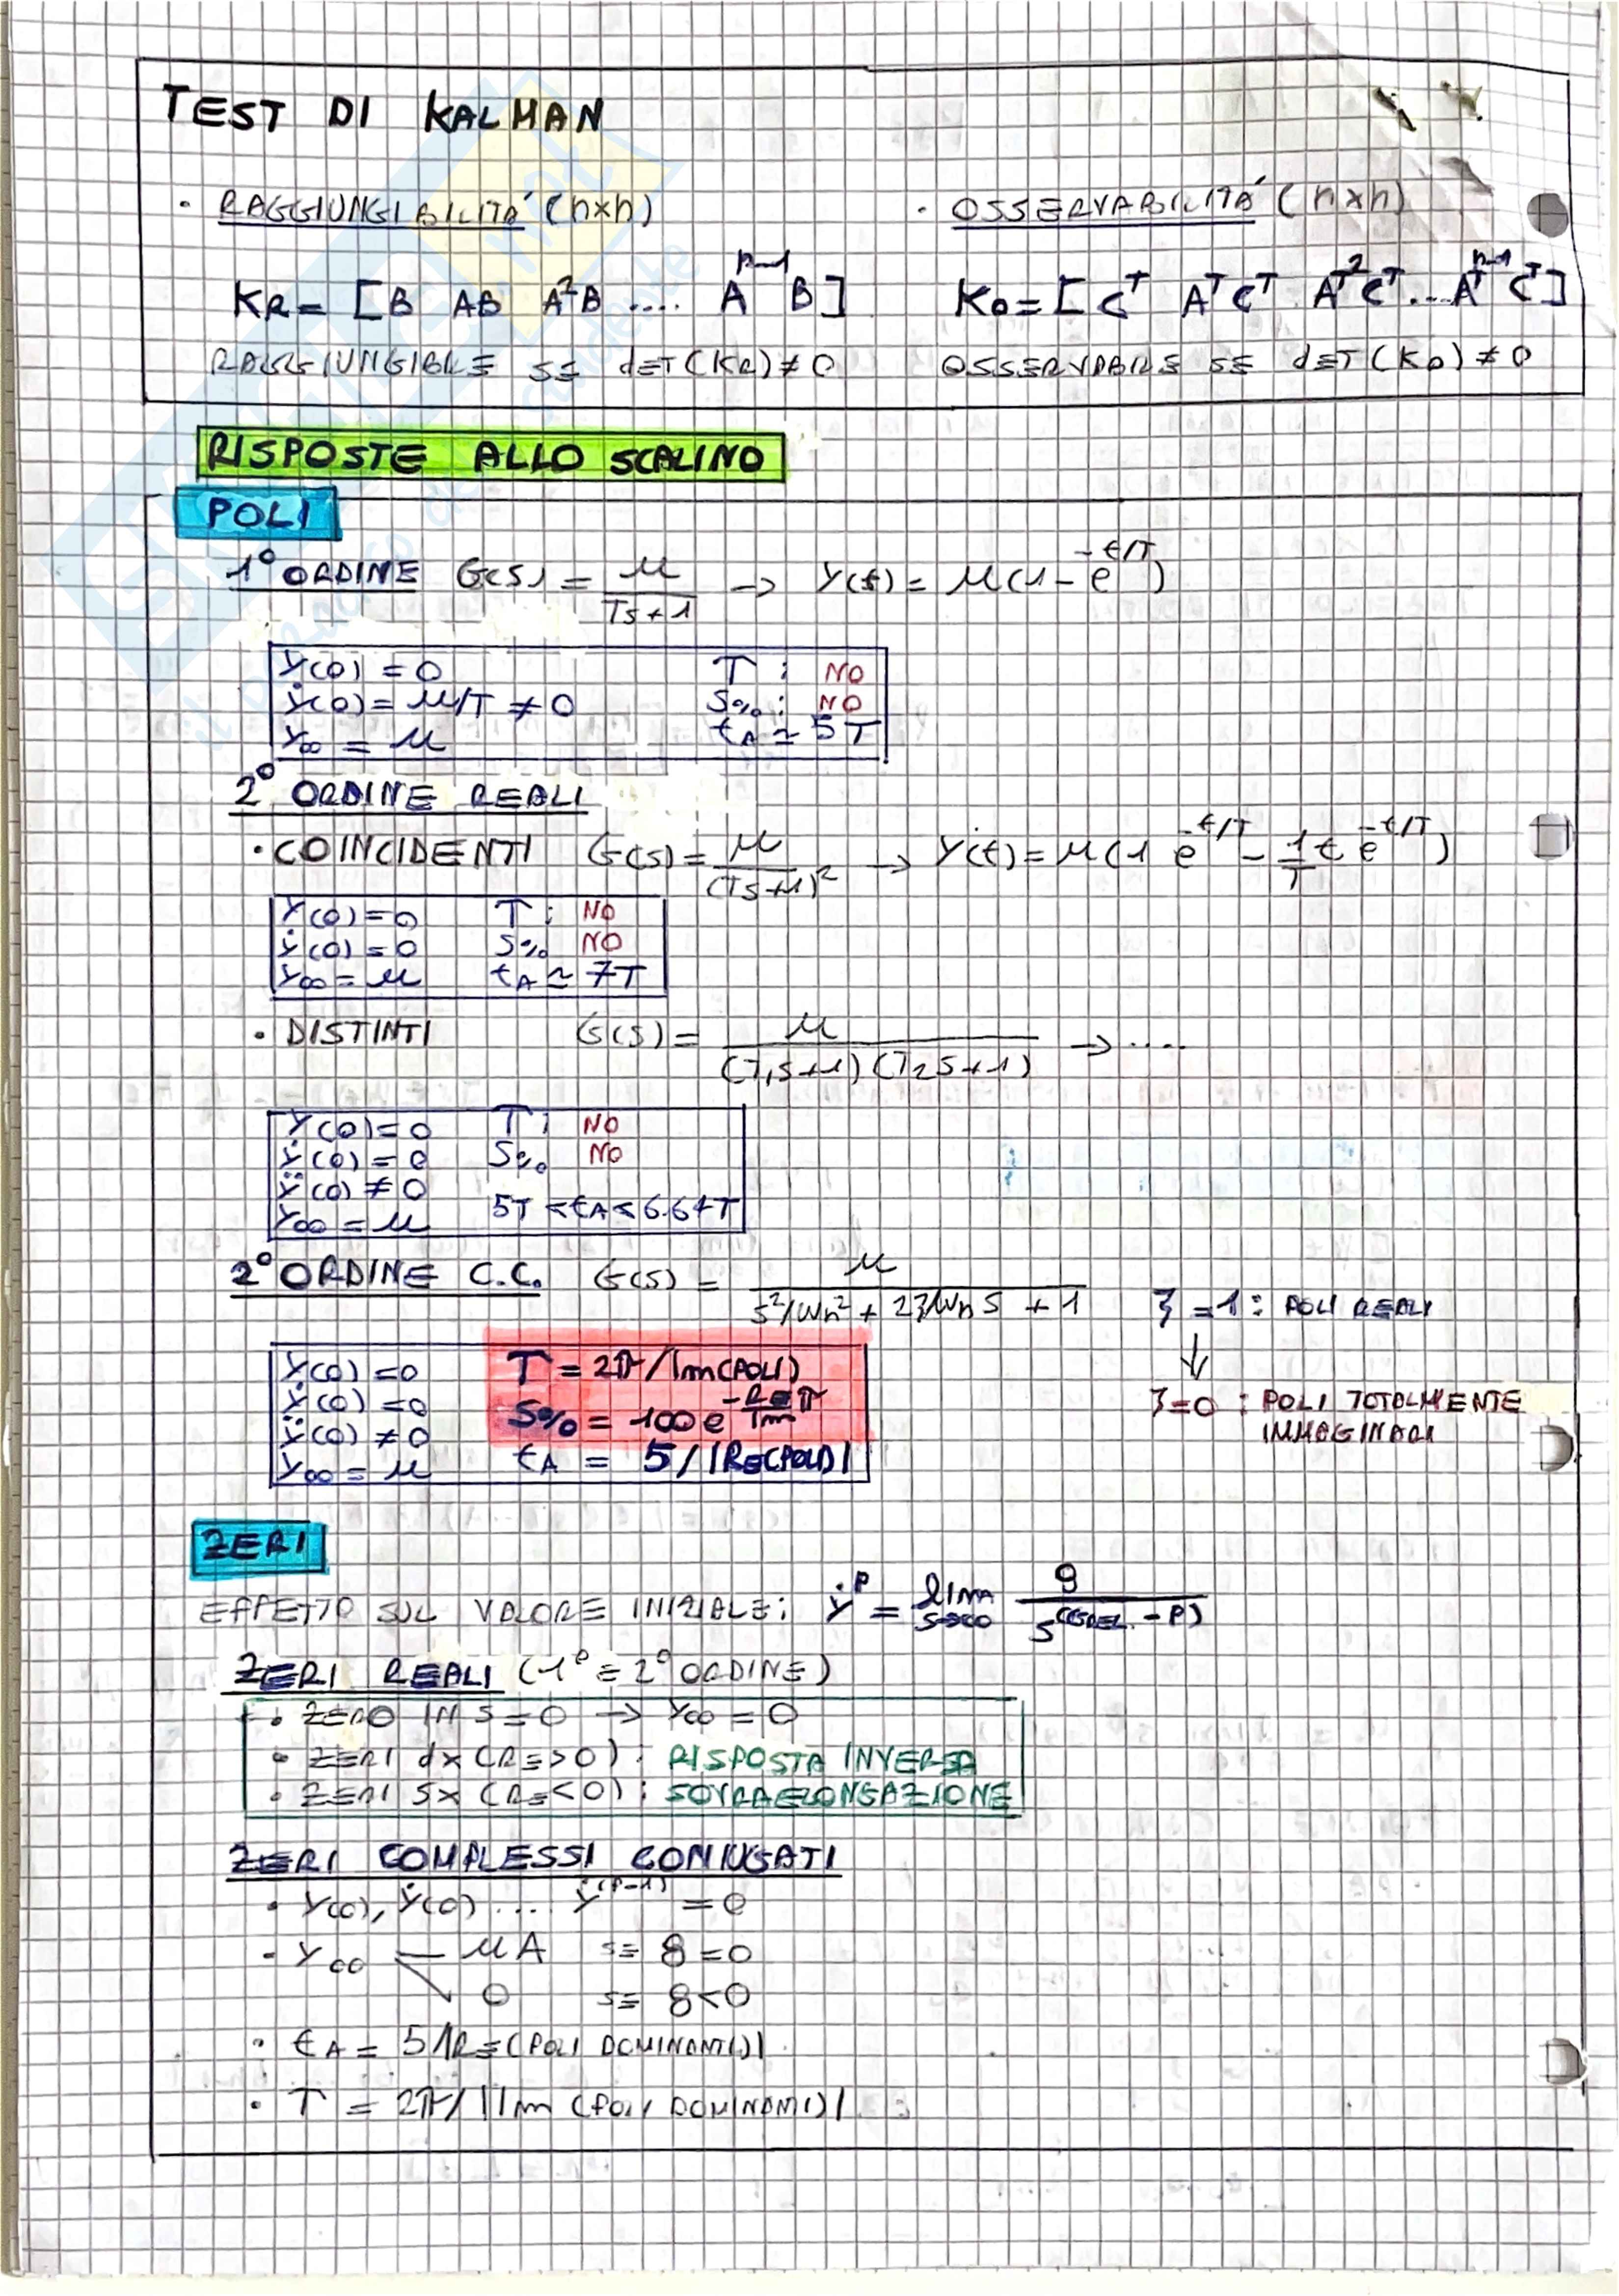 TEST DI KALMAN
· RAGGIUNGIBILITA' (n×n)
KR = [B AB A²B .... Aⁿ⁻¹B]
RAGGIUNGIBILE SE dET(KR) ≠ 0
· OSSERVABILITA' (n×n)
KO = [Cᵀ AᵀCᵀ Aᵀ²Cᵀ... Aᵀⁿ⁻¹Cᵀ]
OSSERVABILE SE dET(KO) ≠ 0
RISPOSTE ALLO SCALINO
POLI
1° ORDINE G(s) = μ/(Ts+1) → Y(t) = μ(1 - e^(-t/T))
Y(0) = 0 T : NO
Ẏ(0) = μ/T ≠ 0 S% : NO
Y∞ = μ tA ≃ 5T
2° ORDINE REALI
· COINCIDENTI G(s) = μ/(Ts+1)² → Y(t) = μ(1 e^(-t/T) - 1/T t e^(-t/T))
Y(0) = 0 T : NO
Ẏ(0) = 0 S% NO
Y∞ = μ tA ≃ 7T
· DISTINTI G(s) = μ/((T1s+1)(T2s+1)) → ....
Y(0) = 0 T : NO
Ẏ(0) = 0 S% NO
Ÿ(0) ≠ 0
Y∞ = μ 5T < tA < 6.64T
2° ORDINE C.C. G(s) = μ/(s²/ωn² + 2ξ/ωn s + 1)
ξ = 1 : POLI REALI
↓
ξ = 0 : POLI TOTALMENTE
IMMAGINARI
Y(0) = 0 T = 2π/Im(POLI)
Ẏ(0) = 0 S% = 100 e^(-Re/Im π)
Ÿ(0) ≠ 0
Y∞ = μ tA = 5/|Re(POLI)|
ZERI
EFFETTO SUL VALORE INIZIALE: Ẏᴾ = lim s→∞ ϱ/s^(GREL. - P)
ZERI REALI (1° E 2° ORDINE)
· ZERO IN S = 0 → Y∞ = 0
· ZERI dx (RE > 0) : RISPOSTA INVERSA
· ZERI Sx (RE < 0) : SOVRAELONGAZIONE
ZERI COMPLESSI CONIUGATI
· Y(0), Ẏ(0) .... Ẏ^(P-1) = 0
· Y∞ μA SE g = 0
0 SE g < 0
· tA = 5/|RE(POLI DOMINANTI)|
· T = 2π/|Im (POLI DOMINANTI)|
SKUOLA.net
il paradiso dello studente